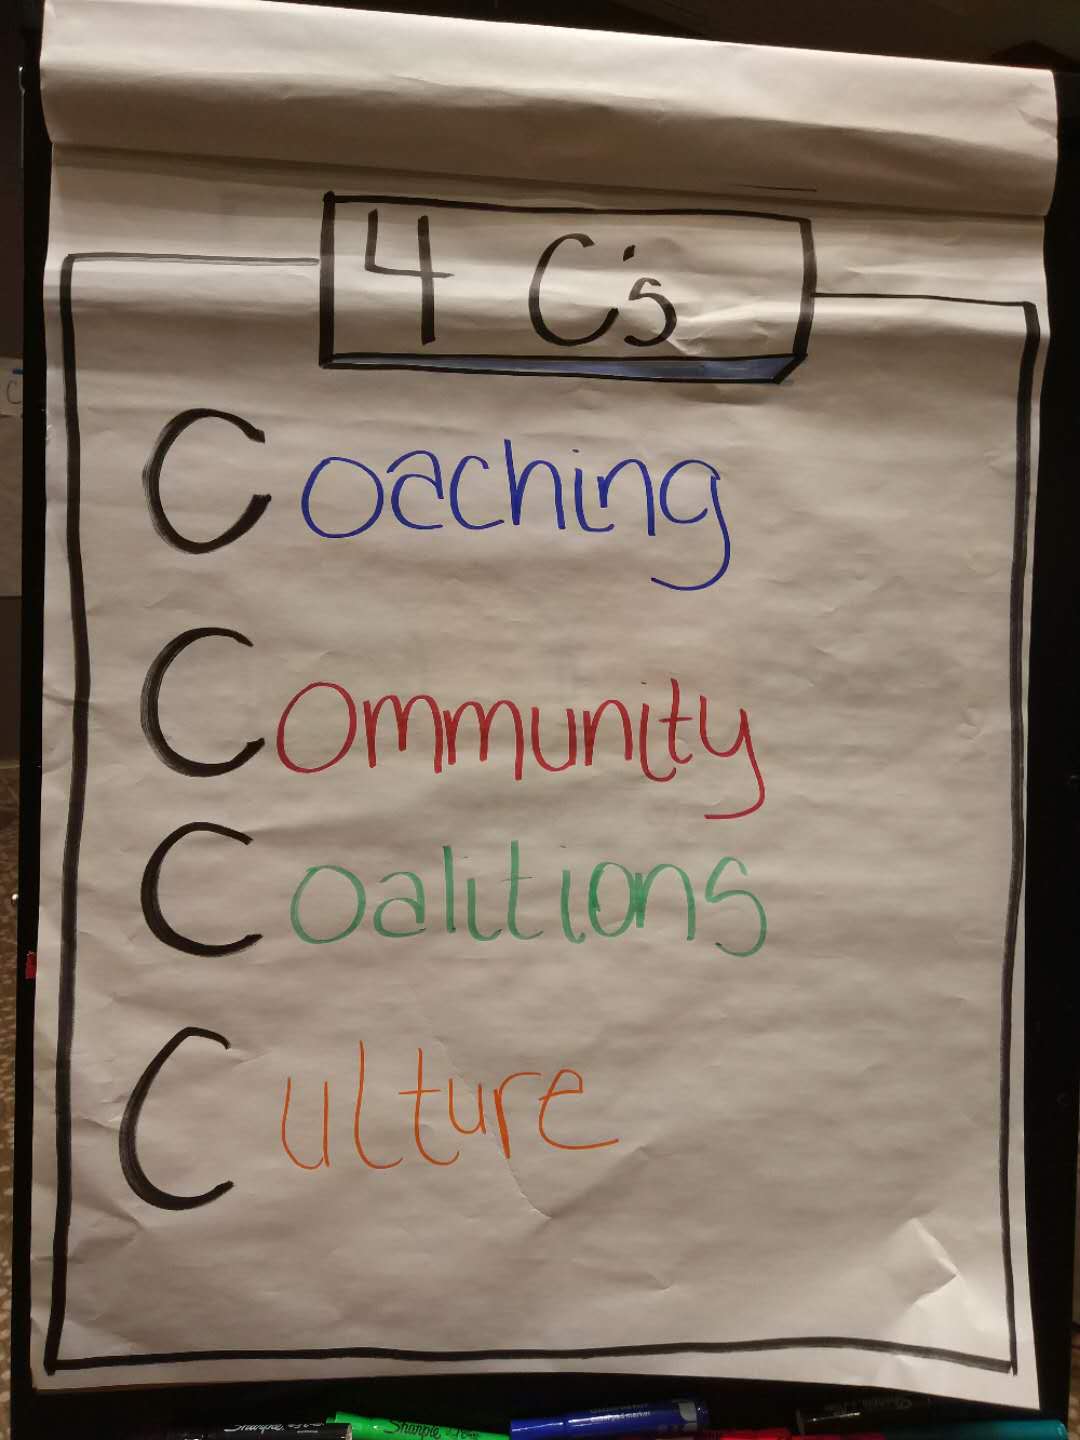 4 C's
Coaching
Community
Coalitions
Culture
Sharpie